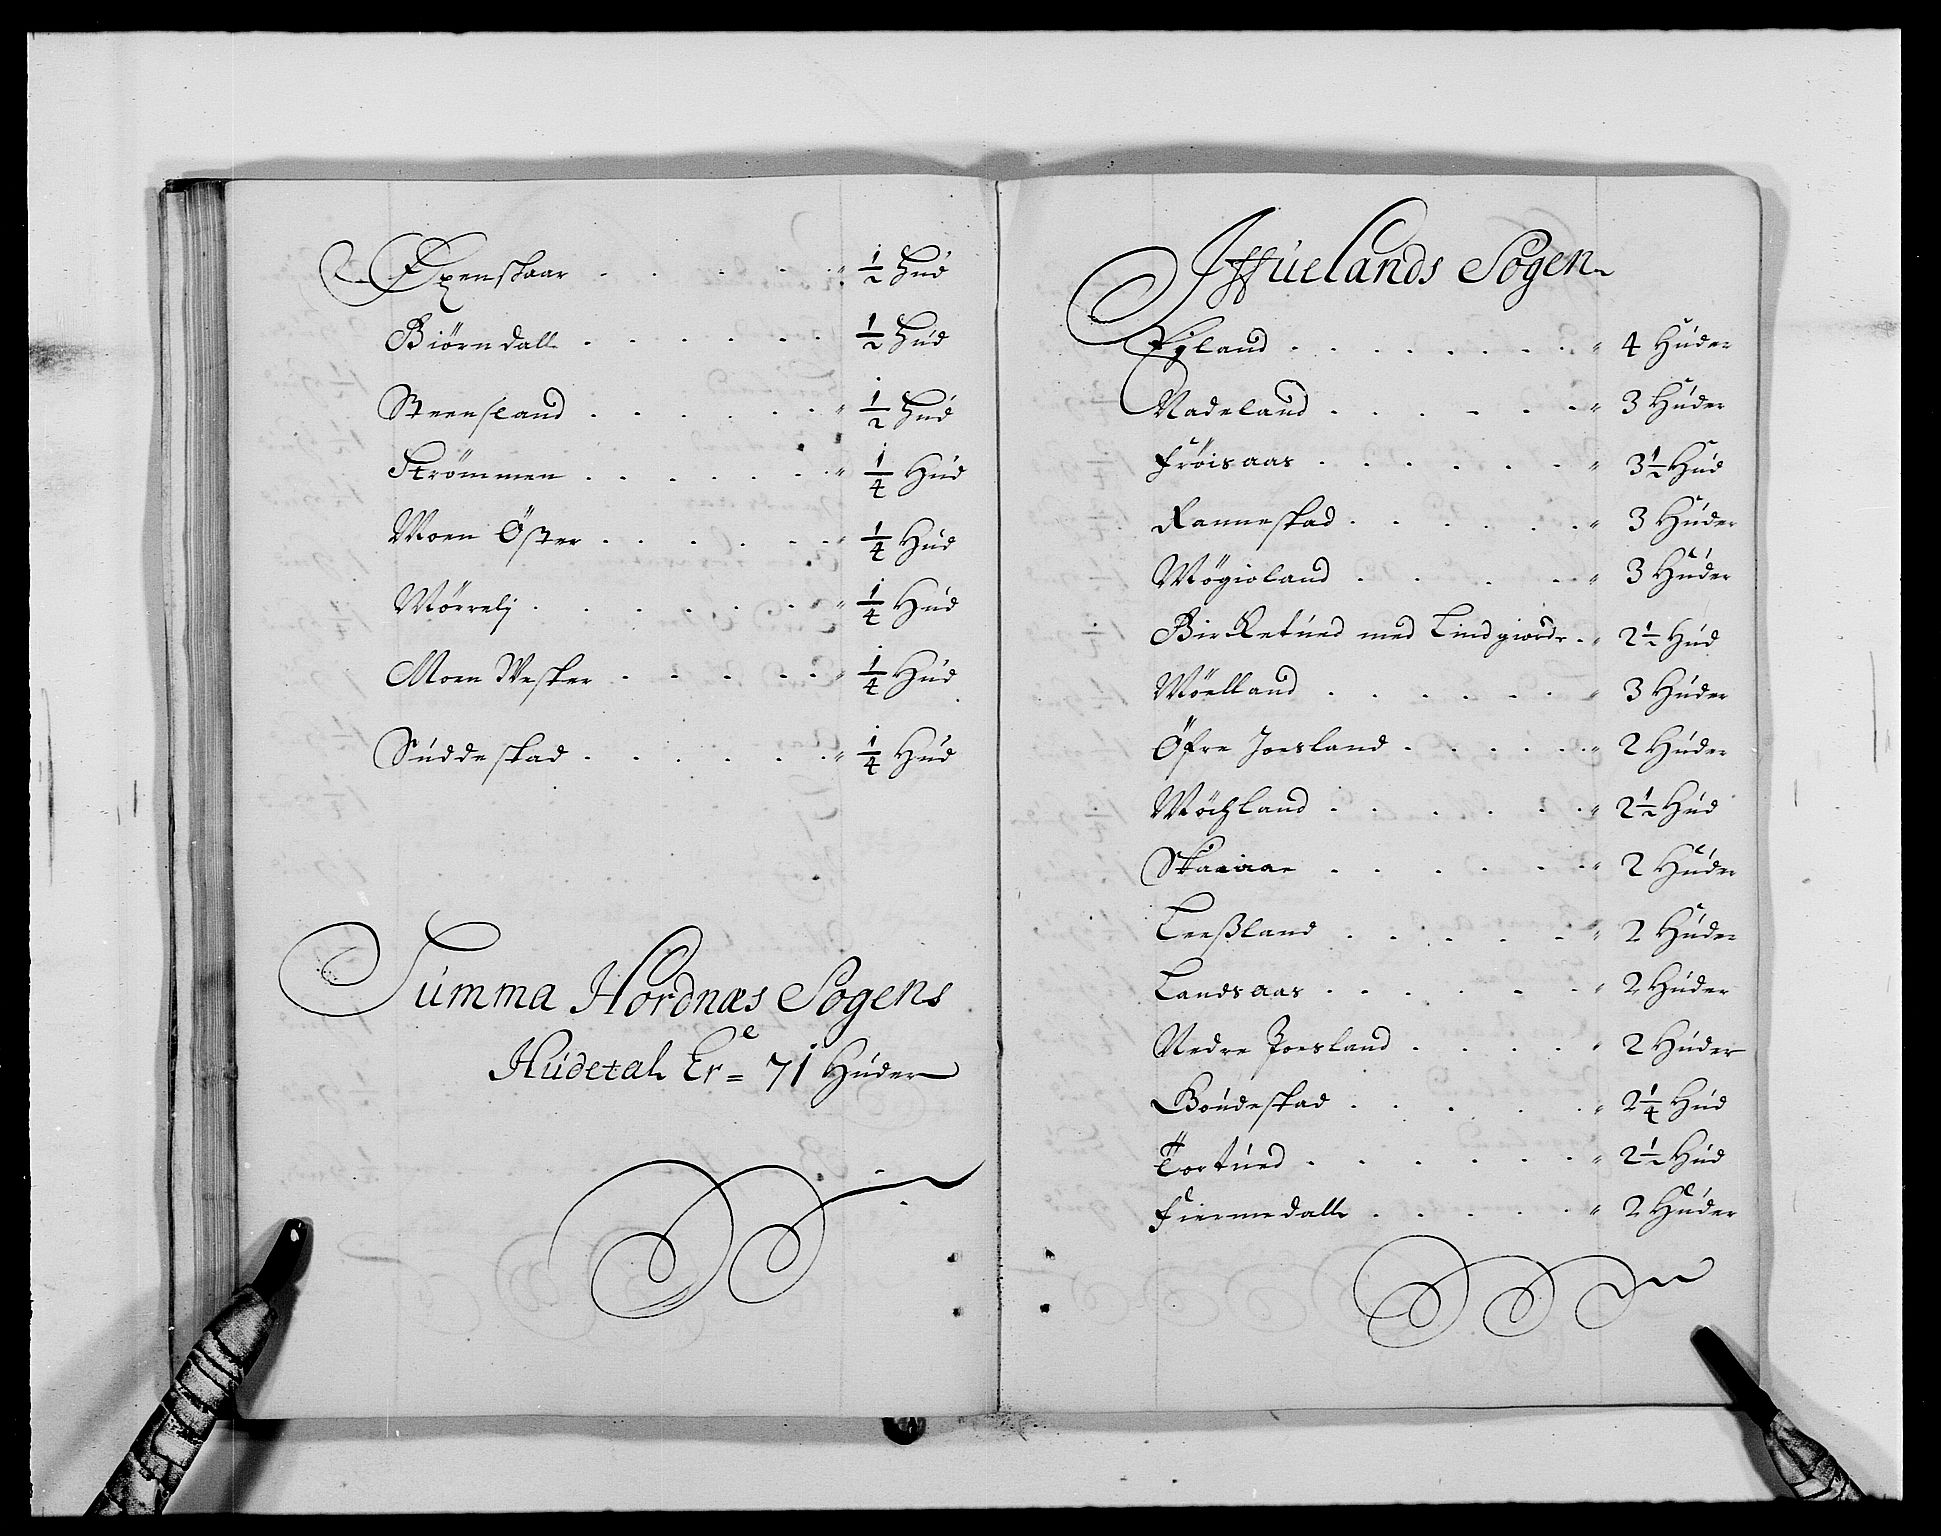 Expenskaar . . . . . . " 1/2 Hud
Biörndall . . . . . . 1/2 Hud
Steensland . . . . . . " 1/2 Hud
Strömmen . . . . . . " 1/4 Hud
Moen Öster . . . . . " 1/4 Hud
Mörrelj . . . . . . " 1/4 Hud
Moen Vester . . . . . " 1/4 Hud
Suddeskad . . . . . . " 1/4 Hud
Summa Hordnæs Sogens
Hudetal Ere = 71 Huder
Iffuelands Sogen
Eyland . . . . . . . " 4 Huder
Nadeland . . . . . . " 3 Huder
Fröisaas . . . . . . " 3 1/2 Hud
Ranneskad . . . . . . " 3 Huder
Mögioland . . . . . " 3 Huder
Birketued med Lindgiordr . " 2 1/2 Hud
Möelland . . . . . . " 3 Huder
Öfre Joesland . . . . . . " 2 Huder
Möchland . . . . . . " 2 1/2 Hud
. . . . . . " 2 Huder
Leeßland . . . . . " 2 Huder
Landsaas . . . . . . " 2 Huder
Nedre Joesland . . . . " 2 Huder
Boudeskad . . . . . " 2 1/4 Hud
Tortued . . . . . . " 2 1/2 Hud
Fiermedall . . . . . " 2 Huder